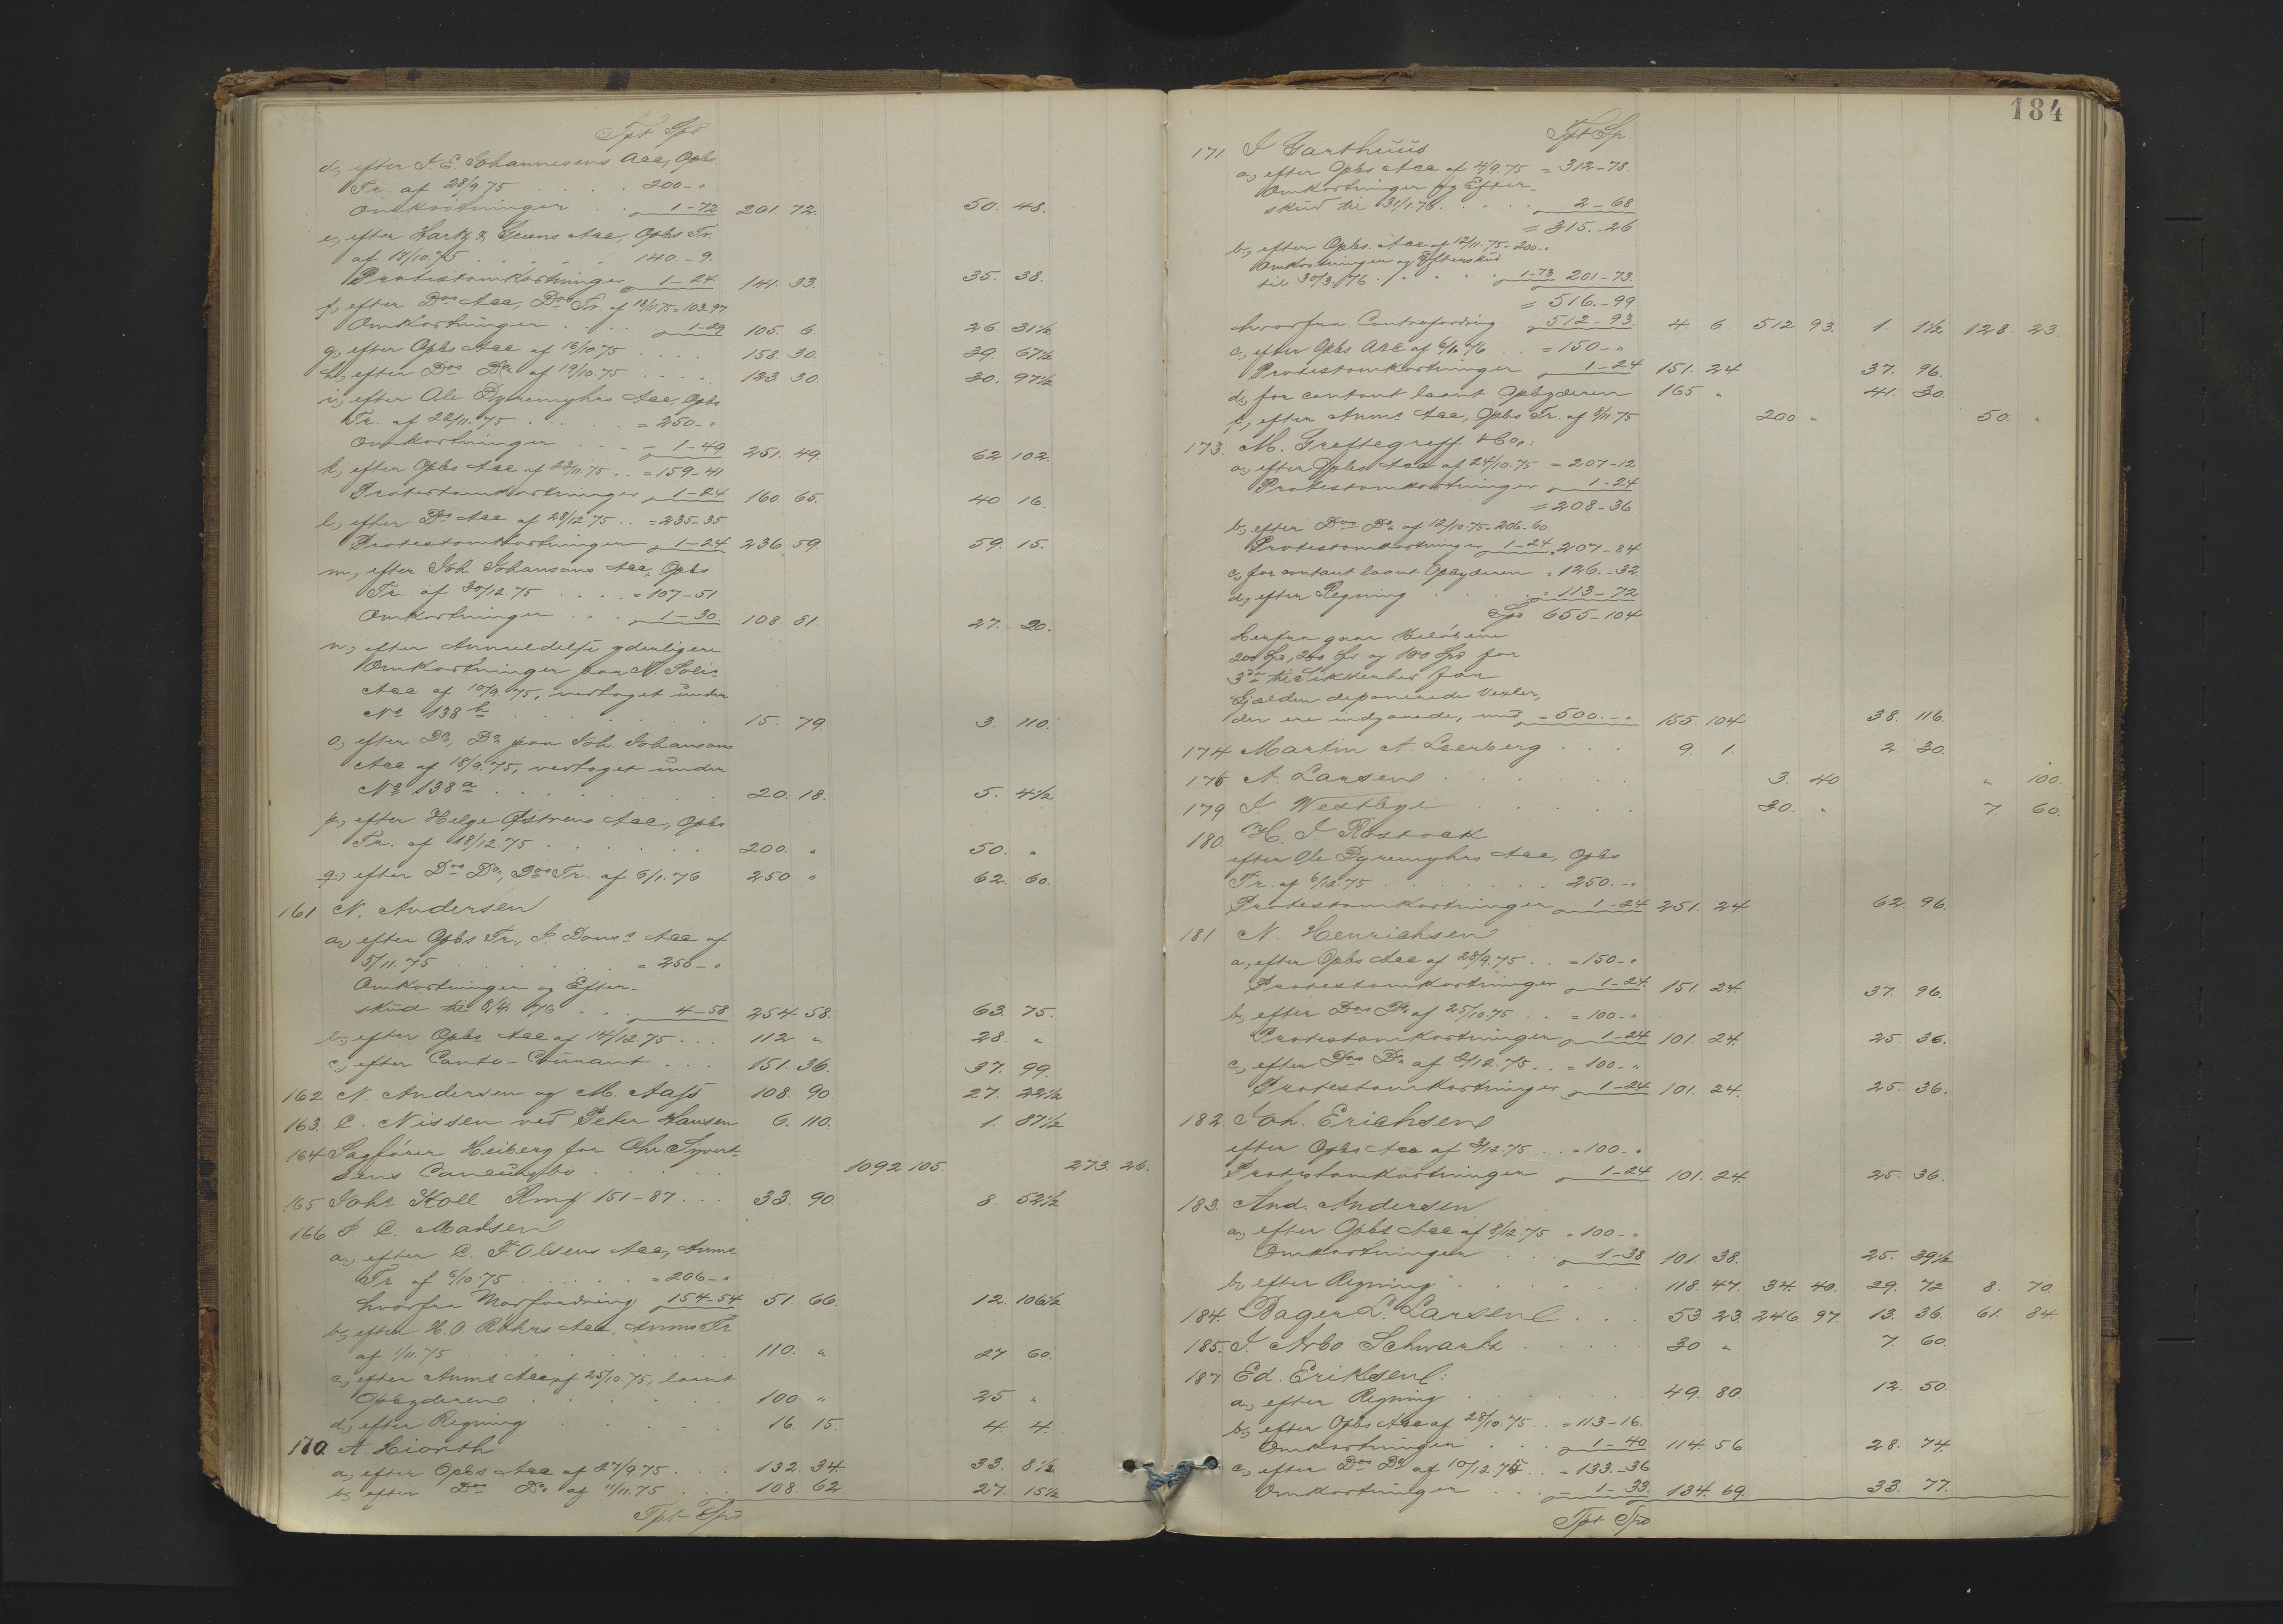 Tpt Spd
d, efter J. E. Johannesens Acc, Opbs
Tr. af 28/9 75 . . . . 200 – "
Omkostninger . . 1–72 201. 72. 50. 48.
e, efter Hartz & Acc, Opbs Tr.
af 18/10.75 . . . . 140.–9.
Protestomkostninger 1–24 141. 33. 35. 38.
f, efter Dos Acc, Dos Tr. af 13/11.75 = 103–97
Omkostninger . . . 1–29 105. 6. 26. 31½
g, efter Opbs Acc af 16/10 75 . . . . 158. 30. 39. 67½
h, efter Dos Do af 19/10.75 . . . . 123. 30. 30. 97½
i, efter Ole Dyremyhrs Acc, Opbs
Tr. af 22/11.75 . . . . = 250–"
Omkostninger . . = 1–49 251. 49. 62 102.
k, efter Opbs Acc af 23/11.75 . . = 159–41
Protestomkostninger 1–24 160 65. 40 16.
l, efter Dos Acc af 28/12.75 . . = 235–35
Protestomkostninger 1–24 236. 59. 59. 15.
m, efter Joh. Johansens Acc, Opbs
Tr. af 30/12.75 . . . . = 107–51
Omkostninger . . . 1–30. 108. 81. 27. 20.
n, efter Anmeldelse yderligere
Omkostninger paa N. Solis
Acc af 10/9.75, vedtaget under
No 138 b . . . . 15. 79. 3. 110.
o, efter Do, Do paa Joh. Johansens
Acc af 18/9.75, vedtaget under
No 138 a . . . . 20. 18. 5. 4½
p, efter Helge Østrens Acc, Opbs
Tr. af 18/12.75 . . . . 200. " 50. "
q, efter Dos Do, Dos Tr. af 6/1.76 250 " 62. 60.
161 N. Andersen
a, efter Opbs Tr., J. Dons's Acc af
5/11.75 . . . . = 250–"
Omkostninger og Efter-
skud til 8/4 76 . . . 4–58 254. 58. 63. 75.
b, efter Opbs Acc af 14/12.75 . . . 112 " 28. "
c, efter Conto-Courant . . . 151. 36. 37. 99.
162 N. Andersen og M. Aass 108. 90. 27. 22½
163. C. Nissen ved Peter Hansen 6. 110. 1. 87½
164 Sagfører Heiberg for Chr. Syvert-
sens Concursbo . . . . 1092 105. 273. 26.
165 Johs Koll Rmf 151–87 . . . 33. 90. 8. 52½
166 P. C. Madsen
a, efter C. F. Olsens Acc, Anms
Tr. af 6/10.75 . . . . = 206–"
hvorfra Modfordring 154–54 51. 66. 12. 106½
b, efter H. O. Røhrs Acc, Anms Tr
af 1/11.75 . . . . 110. " 27 60.
c, efter Anms Acc af 25/10.75, laant
Opbyderen . . . . 100 " 25 "
d, efter Regning . . . . 16. 15. 4. 4.
170 A. Hiorth
a, efter Opbs Acc af 27/9 75 . . . 132. 34. 33. 8½
b, efter Dos Do af 11/11.75 . . . 108. 62 27. 15½
Tpt Spd
184
Tpt Sp
171. J Garthuus
a, efter Opbs Acc af 4/9.75 = 312–78.
Omkostninger og Efter-
skud til 31/1.76 . . . . 2–68
= 315.–26
b, efter Opbs. Acc af 12/11.75 = 200–"
Omkostninger og Efterskud
til 30/3.76 . . . . 1–73 201–73.
= 516.–99
hvorfra Contrafordring 512–93. 4. 6. 512 93. 1. 1½ 128. 23.
c, efter Opbs Acc af 6/1.76 . . = 150–"
Protestomkostninger 1–24 151. 24 37. 96.
d, for contant laant Opbyderen 165 " 41. 30.
f, efter Anms Acc, Opbs Tr. af 9/11.75 200 " 50. "
173. M. Greftegreff & Co.:
a, efter Opbs Acc af 24/10.75 = 207–12
Protestomkostninger 1–24
= 208–36
b, efter Dos Do af 12/10.75 = 206–60.
Protestomkostninger 1–24 207–84
c, for contant laant Opbyderen = 126.–32
d, efter Regning . . . . = 113–72
Spd 655–104
Herfra gaar Beløbene
200 Spd, 200 Spd og 100 Spd for
3de til Sikkerhed for
Gjælden deponerede Vexler,
der ere indgaaede, med = 500.–" 155. 104 38. 116.
174 Martin A. Leerberg . . . 9. 1. 2. 30.
176 A. Larsen . . . . 3. 40 " 100.
179 J. Westbye . . . . 30. " 7 60.
180. H. J Rostock
efter Ole Dyremyhrs Acc, Opbs
Tr. af 6/12.75 . . . . 250.–"
Protestomkostninger 1–24 251. 24 62. 96.
181. N. Henrichsen
a, efter Opbs Acc af 28/9.75 . . = 150–"
Protestomkostninger 1–24. 151. 24. 37. 96.
b, efter Dos Do af 25/10.75 . . = 100–"
Protestomkostninger 1–24 101. 24. 25. 36.
c, efter Dos Do af 2/12.75 . . = 100–"
Protestomkostninger 1–24 101. 24. 25. 36.
182. Joh. Erichsen
efter Opbs Acc af 3/12.75 . . = 100–"
Protestomkostninger 1–24 101. 24. 25. 36.
183. And. Andersen
a, efter Opbs Acc af 8/12.75 = 100–"
Omkostninger . . 1–38 101. 38. 25. 39½
b, efter Regning . . . . 118. 47. 34. 40. 29. 72 8. 70.
184. Bager L. Larsen . . . 53. 23. 246 97. 13. 36. 61. 84.
185. J. Arbo Schwartz . . . . 30 " 7. 60.
187. Ed. Eriksen:
a, efter Regning . . . . 49. 80. 12. 50.
b, efter Opbs Acc af 28/10.75 . . = 113–16.
Omkostninger . . . 1–40 114. 56 28. 74.
c, efter Dos Do af 10/12.75 . . = 133.–36
Omkostninger . . . 1–33. 134. 69. 33. 77.
Tpt Spd